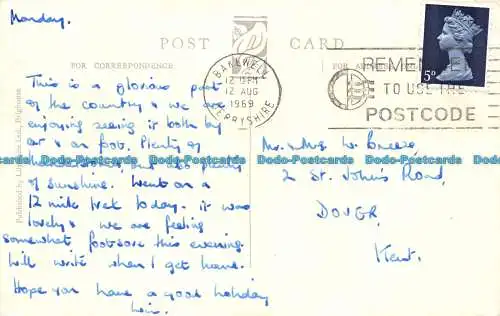 Monday.
POST CARD
FOR CORRESPONDENCE
FOR
BAKEWELL
12 15 PM
12 AUG
1969
DERBYSHIRE
REMEMBER
TO USE THE
POSTCODE
5D
This is a glorious part
of the country & we are
enjoying seeing it both by
car & on foot. Plenty of
but also plenty
of sunshine. Went on a
12 mile trek today. it was
lovely & we are feeling
somewhat footsore this evening.
Will write when I get home.
Hope you have a good holiday
Mr. & Mrs W. Breeze
2 St. John's Road,
DOVER
Kent.
Published by
Dodo-Postcards Dodo-Postcards Dodo-Postcards Dodo-Postcards